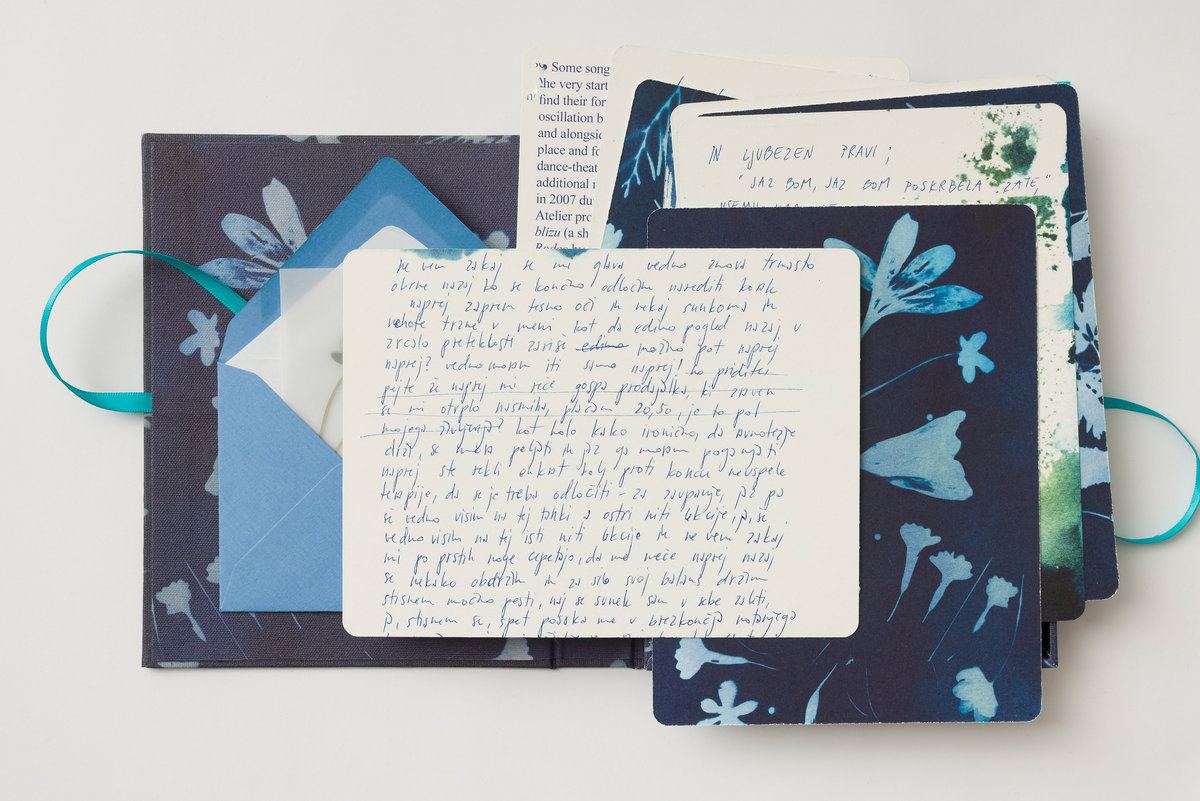 Some song
the very start
find their for
oscillation b
and alongsid
place and fo
dance-theat
additional
in 2007 du
Atelier pro
blizu (a sh
IN LJUBEZEN PRAVI;
"JAZ BOM, JAZ BOM POSKRBELA ZATE,"
VSEMU
ne vem zakaj se mi glava vedno znova trmasto
obrne nazaj ko se končno odločim narediti korak
naprej zaprem tesno oči in nekaj sunkoma in
nehote trzne v meni kot da edino pogled nazaj v
zrcalo preteklosti zariše edino možno pot naprej
naprej? vedno moram iti samo naprej! no pridite
pejte že naprej mi reče gospa prodajalka, ki zraven
se mi otrplo nasmiha, plačam 20,50, je to pot
mojega življenja? kot kolo kako ironično, da ravnotežje
drži, se mora peljati in jaz ga moram poganjati
naprej ste rekli enkrat tolj proti koncu neuspele
terapije, da se je treba odločiti - za zaupanje, jaz pa
še vedno visim na tej tanki a ostri niti ukcije, ja, še
vedno visim na tej isti niti ukcije in ne vem zakaj
mi po prstih noge cepetajo, da me neče naprej nazaj
se nekako obdržim in za silo svoj balans držim
stisnem močno pesti, naj se sunek sam v sebe zaleti,
ja, stisnem se, spet potiska me v brezkončja notranjega